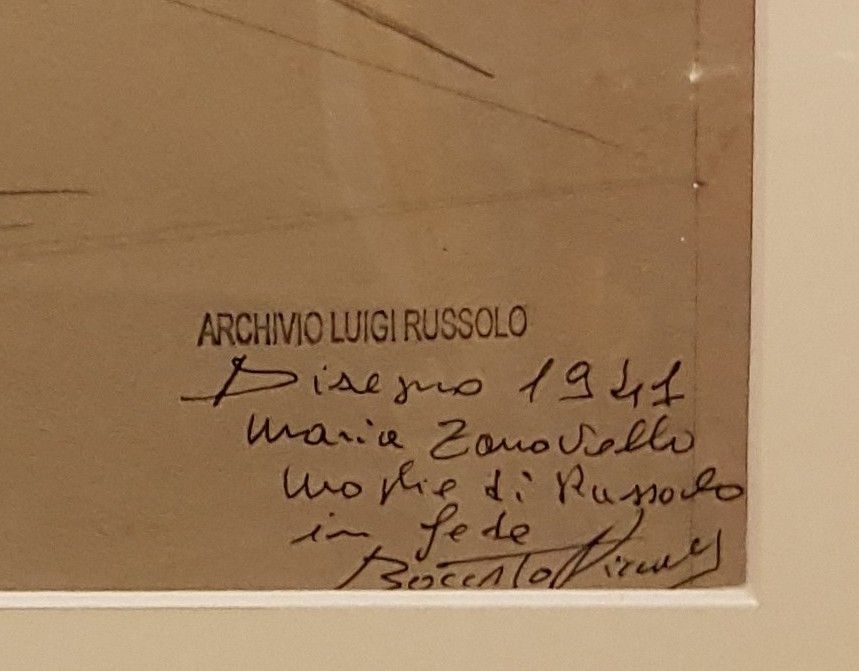 ARCHIVIO LUIGI RUSSOLO
Disegno 1941
Maria Zanoviello
Moglie di Russolo
in fede